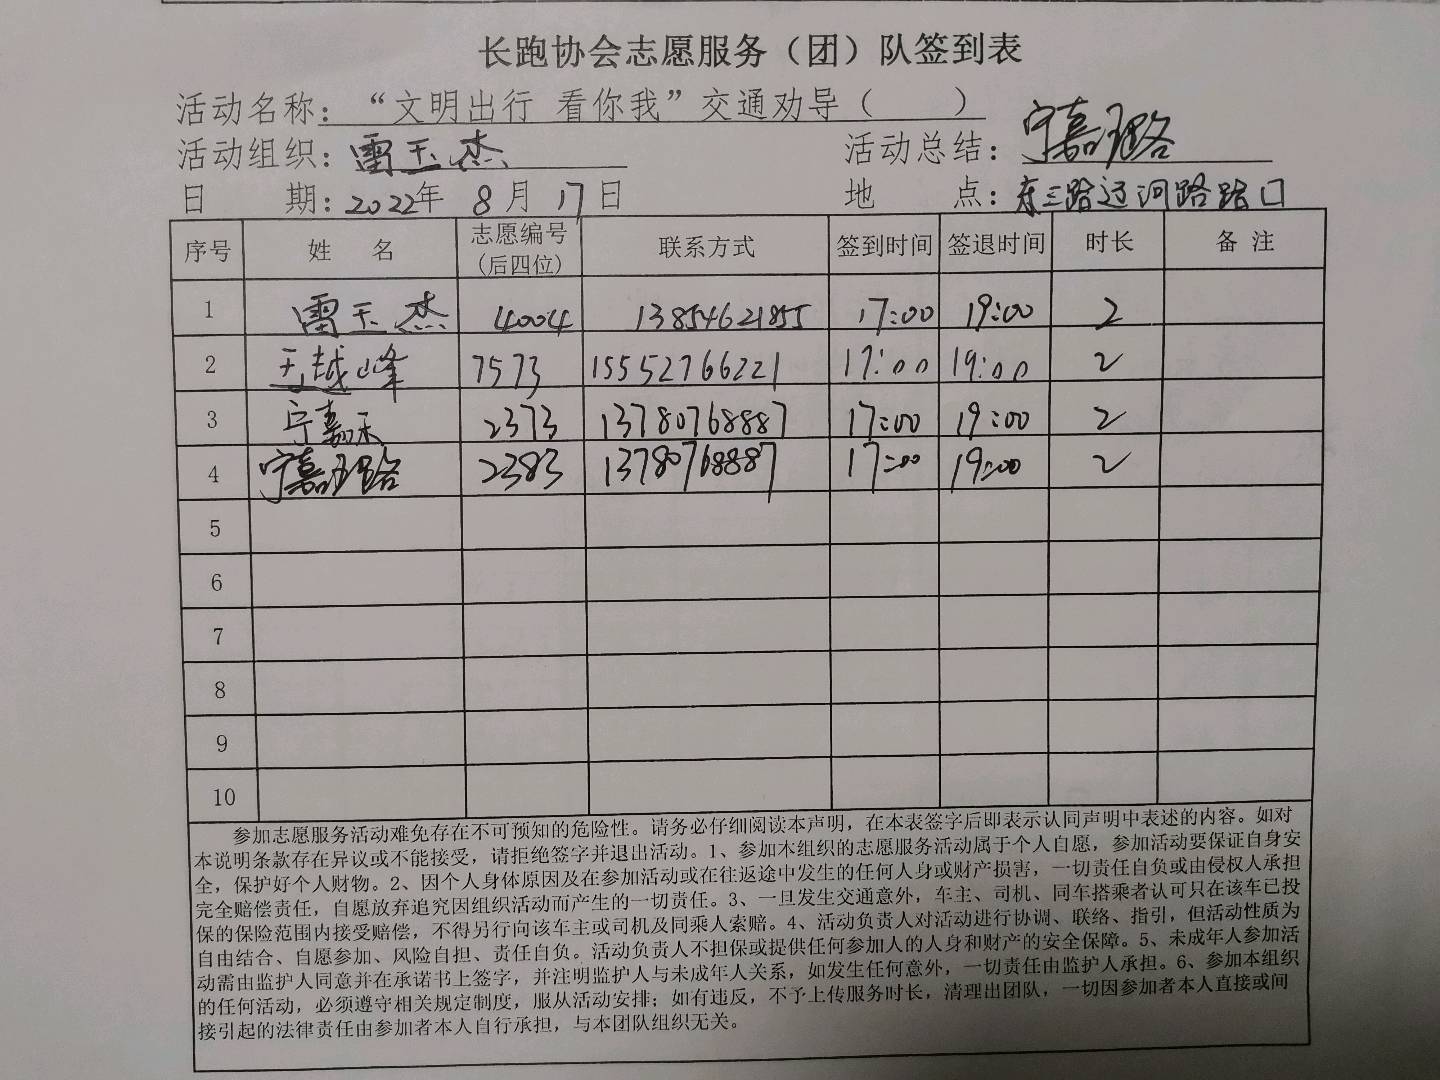 长跑协会志愿服务（团）队签到表
活动名称：“文明出行 看你我”交通劝导（ ）
活动组织：雷玉杰 活动总结：宁嘉珞
日 期：2022年 8月 17日 地 点：东三路辽河路路口
序号 姓 名 志愿编号（后四位） 联系方式 签到时间 签退时间 时长 备 注
1 雷玉杰 4004 13854621855 17:00 19:00 2
2 王越峰 7573 15552766221 17:00 19:00 2
3 宁嘉禾 2373 13780768887 17:00 19:00 2
4 宁嘉珞 2383 13780768887 17:00 19:00 2
5
6
7
8
9
10
参加志愿服务活动难免存在不可预知的危险性。请务必仔细阅读本声明，在本表签字后即表示认同声明中表述的内容。如对
本说明条款存在异议或不能接受，请拒绝签字并退出活动。1、参加本组织的志愿服务活动属于个人自愿，参加活动要保证自身安
全，保护好个人财物。2、因个人身体原因及在参加活动或在往返途中发生的任何人身或财产损害，一切责任自负或由侵权人承担
完全赔偿责任，自愿放弃追究因组织活动而产生的一切责任。3、一旦发生交通意外，车主、司机、同车搭乘者认可只在该车已投
保的保险范围内接受赔偿，不得另行向该车主或司机及同乘人索赔。4、活动负责人对活动进行协调、联络、指引，但活动性质为
自由结合、自愿参加、风险自担、责任自负。活动负责人不担保或提供任何参加人的人身和财产的安全保障。5、未成年人参加活
动需由监护人同意并在承诺书上签字，并注明监护人与未成年人关系，如发生任何意外，一切责任由监护人承担。6、参加本组织
的任何活动，必须遵守相关规定制度，服从活动安排；如有违反，不予上传服务时长，清理出团队，一切因参加者本人直接或间
接引起的法律责任由参加者本人自行承担，与本团队组织无关。